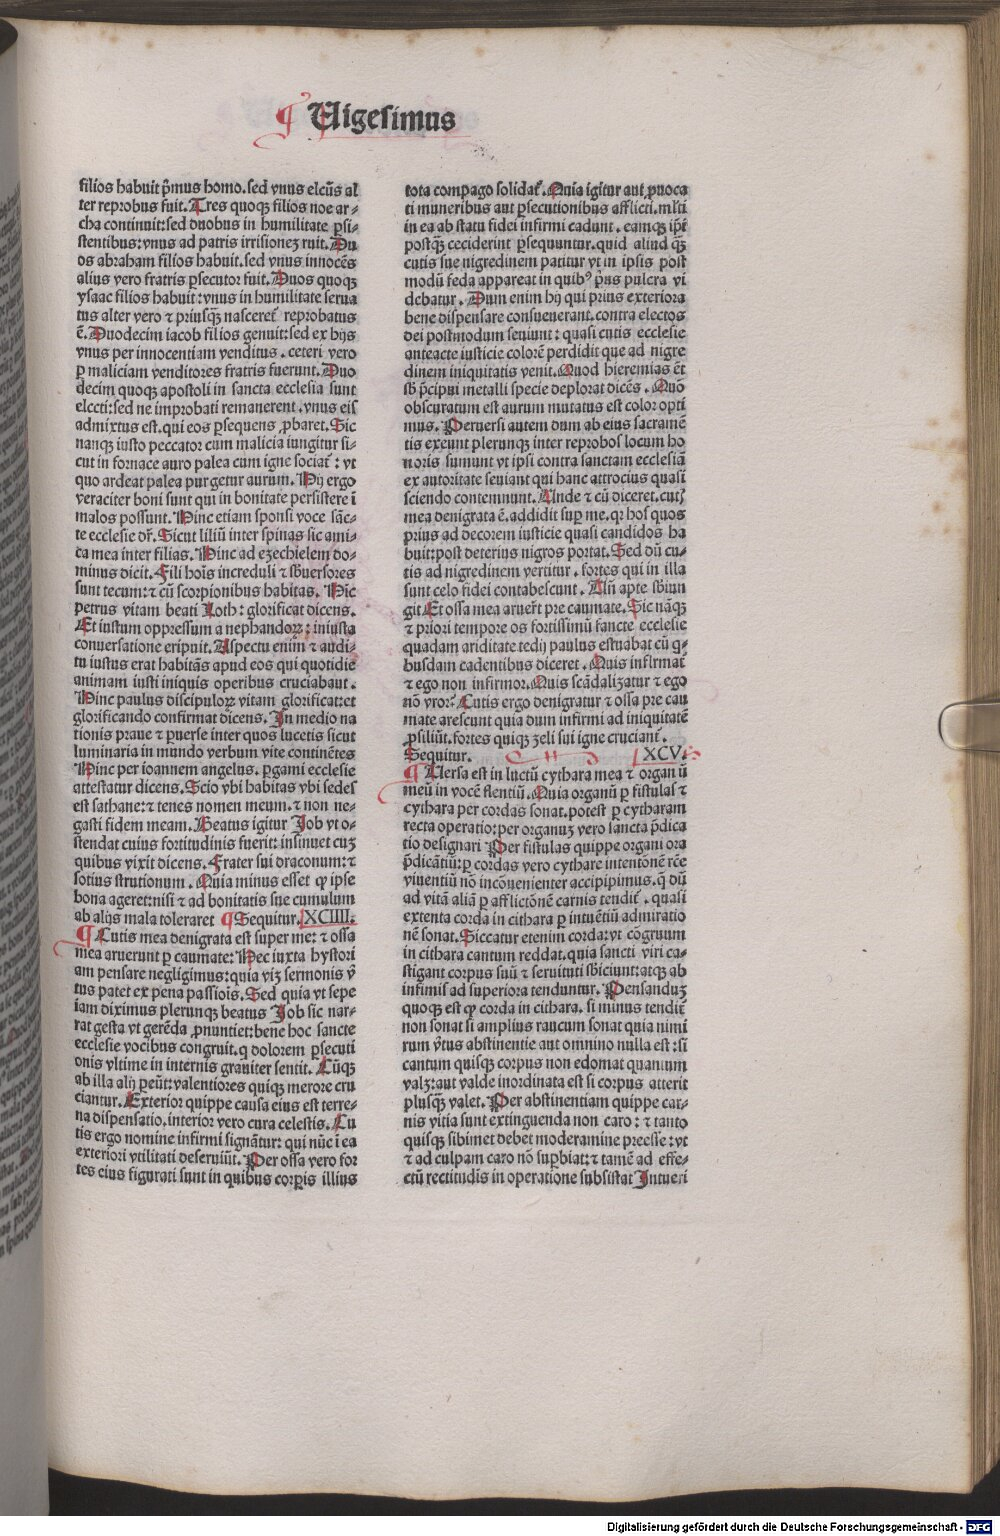 ¶ Uigesimus
filios habuit p̃mus homo. sed vnus elcũs al
ter reprobus fuit. Tres quoqꝫ filios noe ar-
cha continuit: sed duobus in humilitate ꝑsi-
stentibus: vnus ad patris irrisionez ruit. Du
os abraham filios habuit. sed vnus innocẽs
alius vero fratris ꝑsecutor fuit. Duos quoqꝫ
ysaac filios habuit: vnus in humilitate serua
tus alter vero ⁊ priusqꝫ̃ nasceret̃ reprobatus
ẽ. Duodecim iacob filios genuit: sed ex hijs
vnus per innocentiam venditus. ceteri vero
ꝑ maliciam venditores fratris fuerunt. Duo
decim quoqꝫ apostoli in sancta ecclesia sunt
elccti: sed ne improbati remanerent. vnus eis
admixtus est. qui eos ꝑsequens ꝓbaret. Sic
nanqꝫ iusto peccator cum malicia iungitur si-
cut in fornace auro palea cum igne sociat̃: vt
quo ardeat palea purgetur aurum. Hij ergo
veraciter boni sunt qui in bonitate persistere ĩ
malos possunt. Hinc etiam sponsi voce sãc-
te ecclesie dr̃. Sicut liliũ inter spinas sic ami-
ca mea inter filias. Hinc ad ezechielem do-
minus dicit. Fili hoĩs increduli ⁊ sb̃uersores
sunt tecum: ⁊ cũ scorpionibus habitas. Hic
petrus vitam beati Loth: glorificat dicens.
Et iustum oppressum a nephandoꝝ: iniusta
conuersatione eripuit. Aspectu enim ⁊ audi-
tu iustus erat habitãs apud eos qui quotidie
animam iusti iniquis operibus cruciabant.
Hinc paulus discipuloꝝ vitam glorificat: et
glorificando confirmat dicens. In medio na
tionis praue ⁊ ꝑuerse inter quos lucetis sicut
luminaria in mundo verbum vite continẽtes
Hinc per ioannem angelus. ꝑgami ecclesie
attestatur dicens. Scio vbi habitas vbi sedes
est sathane: ⁊ tenes nomen meum. ⁊ non ne-
gasti fidem meam. Beatus igitur Job vt o-
stendat cuius fortitudinis fuerit: insinuet cuꝫ
quibus vixit dicens. Frater fui draconum: ⁊
sotius strutionum. Quia minus esset ꝙ ipse
bona ageret: nisi ⁊ ad bonitatis sue cumulum
ab alijs mala toleraret ¶ Sequitur. XCIIII.
¶ Cutis mea denigrata est super me: ⁊ ossa
mea aruerunt ꝑ caumate: Hec iuxta hystori
am pensare negligimus: quia viꝫ sermonis ṽ
tus patet ex pena passiõis. Sed quia vt sepe
iam diximus plerunqꝫ beatus Job sic nar-
rat gesta vt gerẽda ꝓnuntiet: bene hoc sancte
ecclesie vocibus congruit. q dolorem ꝑsecuti
onis vltime in internis grauiter sentit. Cũqꝫ
ab illa alij ꝑeũt: valentiores quiqꝫ merore cru
ciantur. Exterior quippe causa eius est terre-
na dispensatio. interior vero cura celestis. Cu
tis ergo nomine infirmi signãtur: qui nũc ĩ ea
exteriori vtilitati deseruiũt. Per ossa vero for
tes eius figurati sunt in quibus corꝑis illius
tota compago solidat̃. Quia igitur aut ꝓuoca
ti muneribus aut ꝑsecutionibus afflicti. ml̃ti
in ea ab statu fidei infirmi cadunt. eamqꝫ ip̃i
postqꝫ̃ ceciderint ꝑsequuntur. quid aliud qꝫ̃
cutis sue nigredinem patitur vt in ipsis post
modũ feda appareat in quibꝰ p̃us pulcra vi
debatur. Dum enim hij qui prius exteriora
bene dispensare consueuerant. contra electos
dei postmodum seuiunt: quasi cutis ecclesie
anteacte iusticie colorẽ perdidit que ad nigre
dinem iniquitatis venit. Quod hieremias ẽt
sb̃ p̃cipui metalli specie deplorat dicẽs. Quõ
obscuratum est aurum mutatus est color opti
mus. Peruersi autem dum ab eius sacramẽ
tis exeunt plerunqꝫ inter reprobos locum ho
noris sumunt vt ipsi contra sanctam ecclesiã
ex autoritate seuiant qui hanc attrocius quasi
sciendo contemnunt. Unde ⁊ cũ diceret. cutꝭ
mea denigrata ẽ. addidit suꝑ me. qꝛ hos quos
prius ad decorem iusticie quasi candidos ha
buit: post deterius nigros portat. Sed dũ cu-
tis ad nigredinem vertitur. fortes qui in illa
sunt celo fidei contabescunt. Uñ apte sb̃iun
git Et ossa mea aruer̃t pre caumate. Sic nãqꝫ
⁊ priori tempore os fortissimũ sancte ecclesie
quadam ariditate tedij paulus estuabat cũ q-
busdam cadentibus diceret. Quis infirmat̃
⁊ ego non infirmor. Quis scãdalizatur ⁊ ego
nõ vror: Cutis ergo denigratur ⁊ ossa pre cau
mate arescunt quia dum infirmi ad iniquitatẽ
ꝓsiliũt. fortes quiqꝫ zeli sui igne cruciant̃.
Sequitur. XCV.
¶ Uersa est in luctũ cythara mea ⁊ organ ũ
meũ in vocẽ flentiũ. Quia organũ ꝑ fistulas ⁊
cythara per cordas sonat. potest ꝑ cytharam
recta operatio: per organuꝫ vero sancta p̃dica
tio designari Per fistulas quippe organi ora
p̃dicãtiũ: ꝑ cordas vero cythare intentõnẽ rc̃e
viuentiũ nõ incõuenienter accipipimus. q̃ dũ
ad vitã aliã ꝑ afflictõnẽ carnis tendit̃. quasi
extenta corda in cithara ꝑ intuẽtiũ admiratio
nẽ sonat. Siccatur etenim corda: vt cõgruum
in cithara cantum reddat. quia sancti viri ca-
stigant corpus suũ ⁊ seruituti sb̃iciunt: atqꝫ ab
infimis ad superiora tenduntur. Pensanduꝫ
quoqꝫ est ꝙ corda in cithara. si minus tendit̃
non sonat si amplius raucum sonat quia nimi
rum ṽtus abstinentie aut omnino nulla est: si
tantum quisqꝫ corpus non edomat quantum
valꝫ: aut valde inordinata est si corpus atterit
plusqꝫ̃ valet. Per abstinentiam quippe car-
nis vitia sunt extinguenda non caro: ⁊ tanto
quisqꝫ sibimet debet moderamine preesse: vt
⁊ ad culpam caro nõ suꝑbiat: ⁊ tamẽ ad effe-
ctũ rectitudĩs in operatione subsistat Intueri
Digitalisierung gefördert durch die Deutsche Forschungsgemeinschaft - DFG